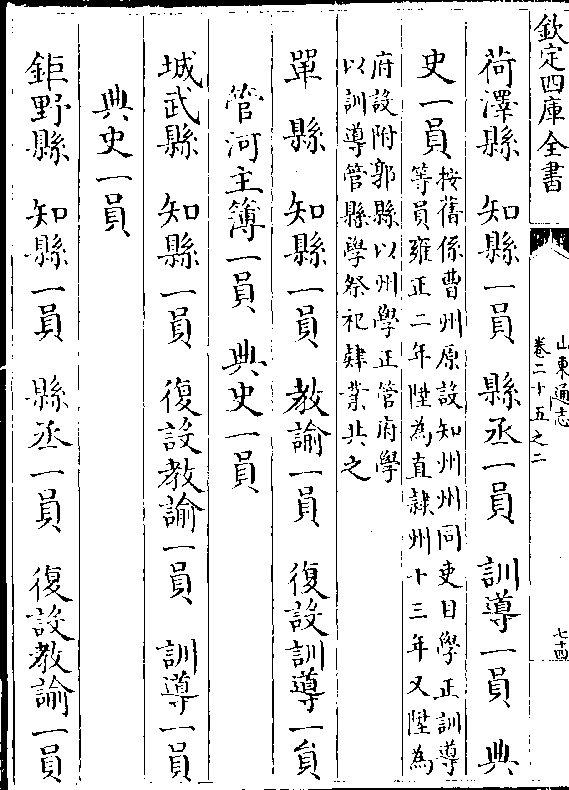 欽定四庫全書
山東通志
卷二十五之二
七十四
荷澤縣 知縣一員 縣丞一員 訓導一員 典
史一員
按舊係曹州原設知州州同吏目學正訓導
等員雍正二年陞為直隷州十三年又陞為
府設附郭縣以州學正管府學
以訓導管縣學祭祀肄業共之
單縣 知縣一員 教諭一員 復設訓導一員
管河主簿一員 典史一員
城武縣 知縣一員 復設教諭一員 訓導一員
典史一員
鉅野縣 知縣一員 縣丞一員 復設教諭一員